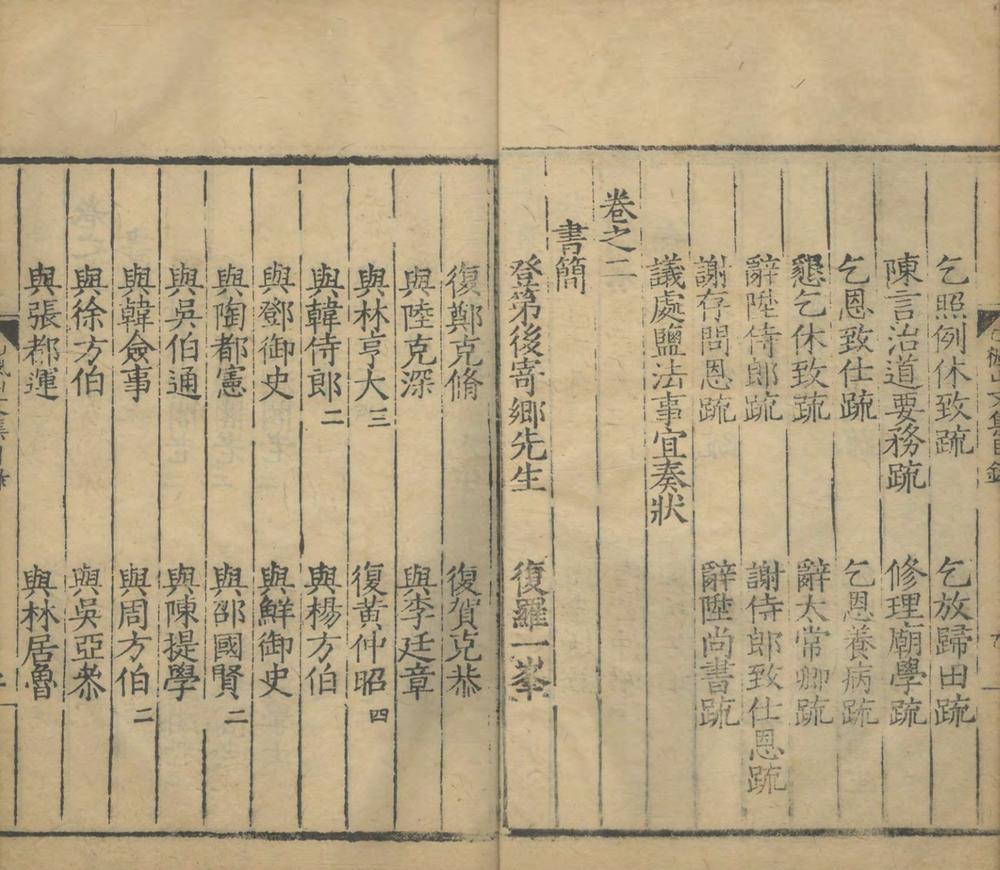 乞照例休致疏　乞放歸田疏
陳言治道要務疏　修理廟學疏
乞恩致仕疏　乞恩養病疏
懇乞休致疏　辭太常卿疏
辭陞侍郎疏　謝侍郎致仕恩疏
謝存問恩疏　辭陞尚書疏
議處鹽法事宜奏狀
卷之二
書簡
登第後寄鄉先生　復羅一峯
復鄭克脩　復賀克恭
與陸克深　與李廷章
與林亨大三　復黃仲昭四
與韓侍郎二　與楊方伯
與鄧御史　與鮮御史
與陶都憲　與邵國賢二
與吳伯通　與陳提學
與韓僉事　與周方伯二
與徐方伯　與吳亞叅
與張都運　與林居魯